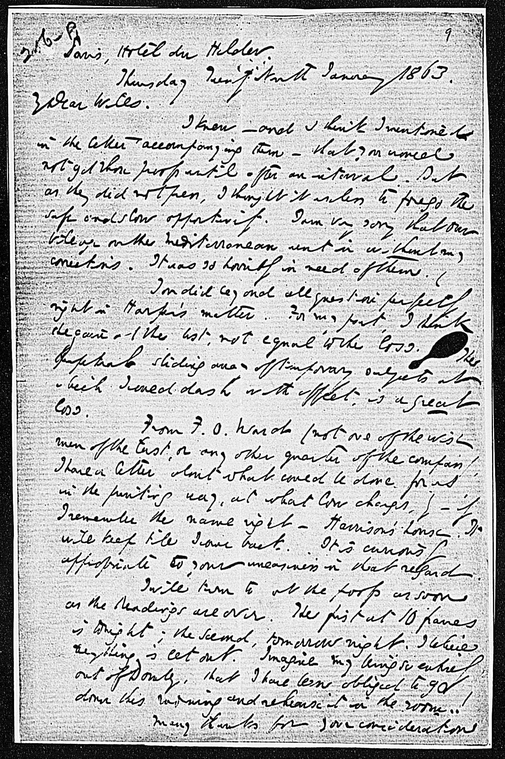 9
Paris, Hotel du Helder
Thursday Twenty Ninth January 1863.
My Dear Wills.
I knew – and I think I mentioned
in the letter accompanying them – that you would
not get those proofs until after an interval. But
as they did not press, I thought it useless to forego the
safe and slow opportunity. I am very sorry that our
on the Mediterranean went in without my
corrections. It was so horribly in need of them.
You did beyond all question perfectly
right in Harper's matter. For my part, I think
the gain of the list, not equal to the loss. The
perpetual sliding away of temporary subjects at
which I could dash with effect, is a great
loss.
From F. O. Ward (not one of the wise
men of the East, or any other quarter of the compass)
I have a letter about what could be done for us
in the printing way, at what low charges, by – if
I remember the name right – Harrison's house. It
will keep till I come back. It is curiously
appropriate to your uneasiness in that regard.
I will turn to at the proofs as soon
as the Readings are over. The first at 10 francs
is tonight; the second, tomorrow night. I believe
everything is let out. Imagine my being so entirely
out of Dombey, that I have been obliged to go
down this morning and rehearse it in the room..!
Many thanks for your consideration